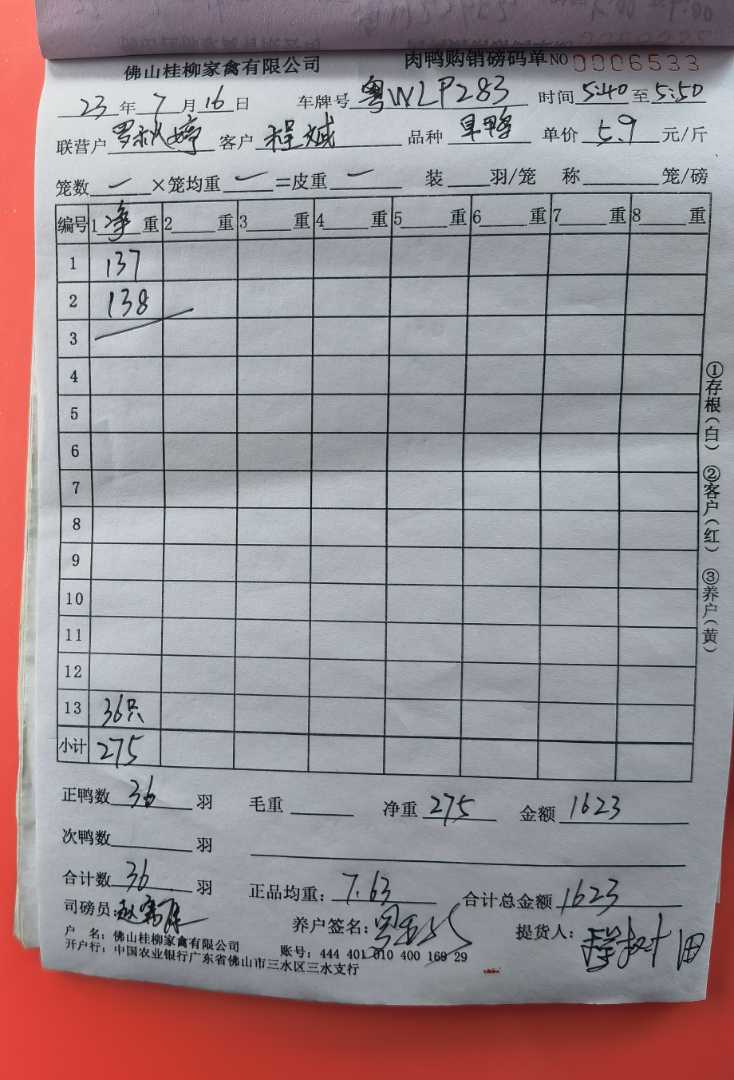 佛山桂柳家禽有限公司 肉鸭购销磅码单NO 0006533
23年7月16日 车牌号 粤WLP283 时间 5:40 至 5:50
联营户 罗秋婷 客户 程斌 品种 旱鸭 单价 5.9 元/斤
笼数 一 ×笼均重 一 =皮重 一 装 羽/笼 称 笼/磅
编号 1 净 重 2 重 3 重 4 重 5 重 6 重 7 重 8 重
1 137
2 138
3
4
5
6
7
8
9
10
11
12
13 36只
小计 275
①存根(白) ②客户(红) ③养户(黄)
正鸭数 36 羽 毛重 净重 275 金额 1623
次鸭数 羽
合计数 36 羽 正品均重: 7.63 合计总金额 1623
司磅员: 养户签名: 提货人:
户 名: 佛山桂柳家禽有限公司 账号: 444 401 010 400 169 29
开户行: 中国农业银行广东省佛山市三水区三水支行